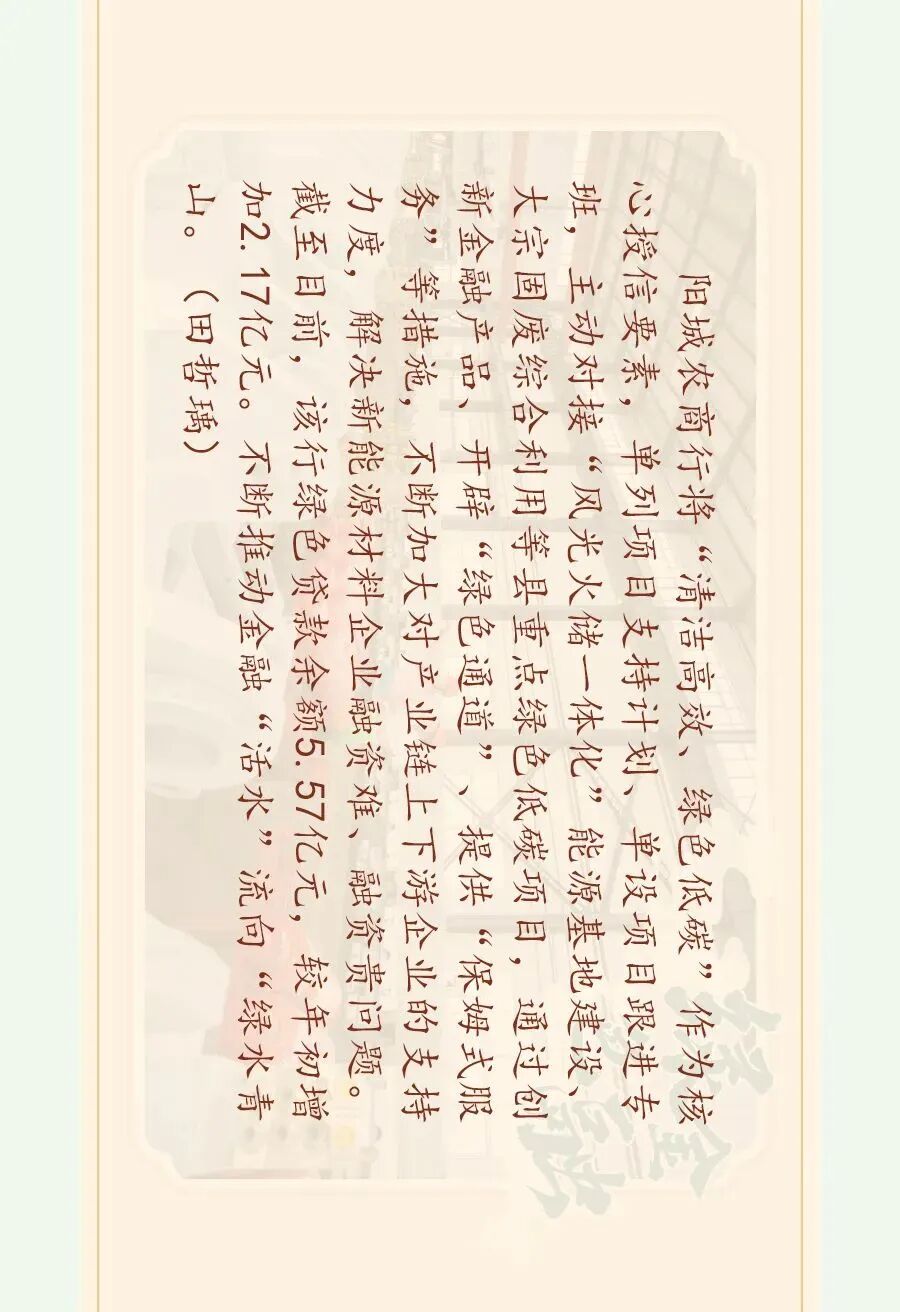 阳城农商行将“清洁高效、绿色低碳”作为核
心授信要素，单列项目支持计划、单设项目跟进专
班，主动对接“风光火储一体化”能源基地建设、
大宗固废综合利用等县重点绿色低碳项目，通过创
新金融产品、开辟“绿色通道”、提供“保姆式服
务”等措施，不断加大对产业链上下游企业的支持
力度，解决新能源材料企业融资难、融资贵问题。
截至目前，该行绿色贷款余额5.57亿元，较年初增
加2.17亿元。不断推动金融“活水”流向“绿水青
山。（田哲瑀）
金融